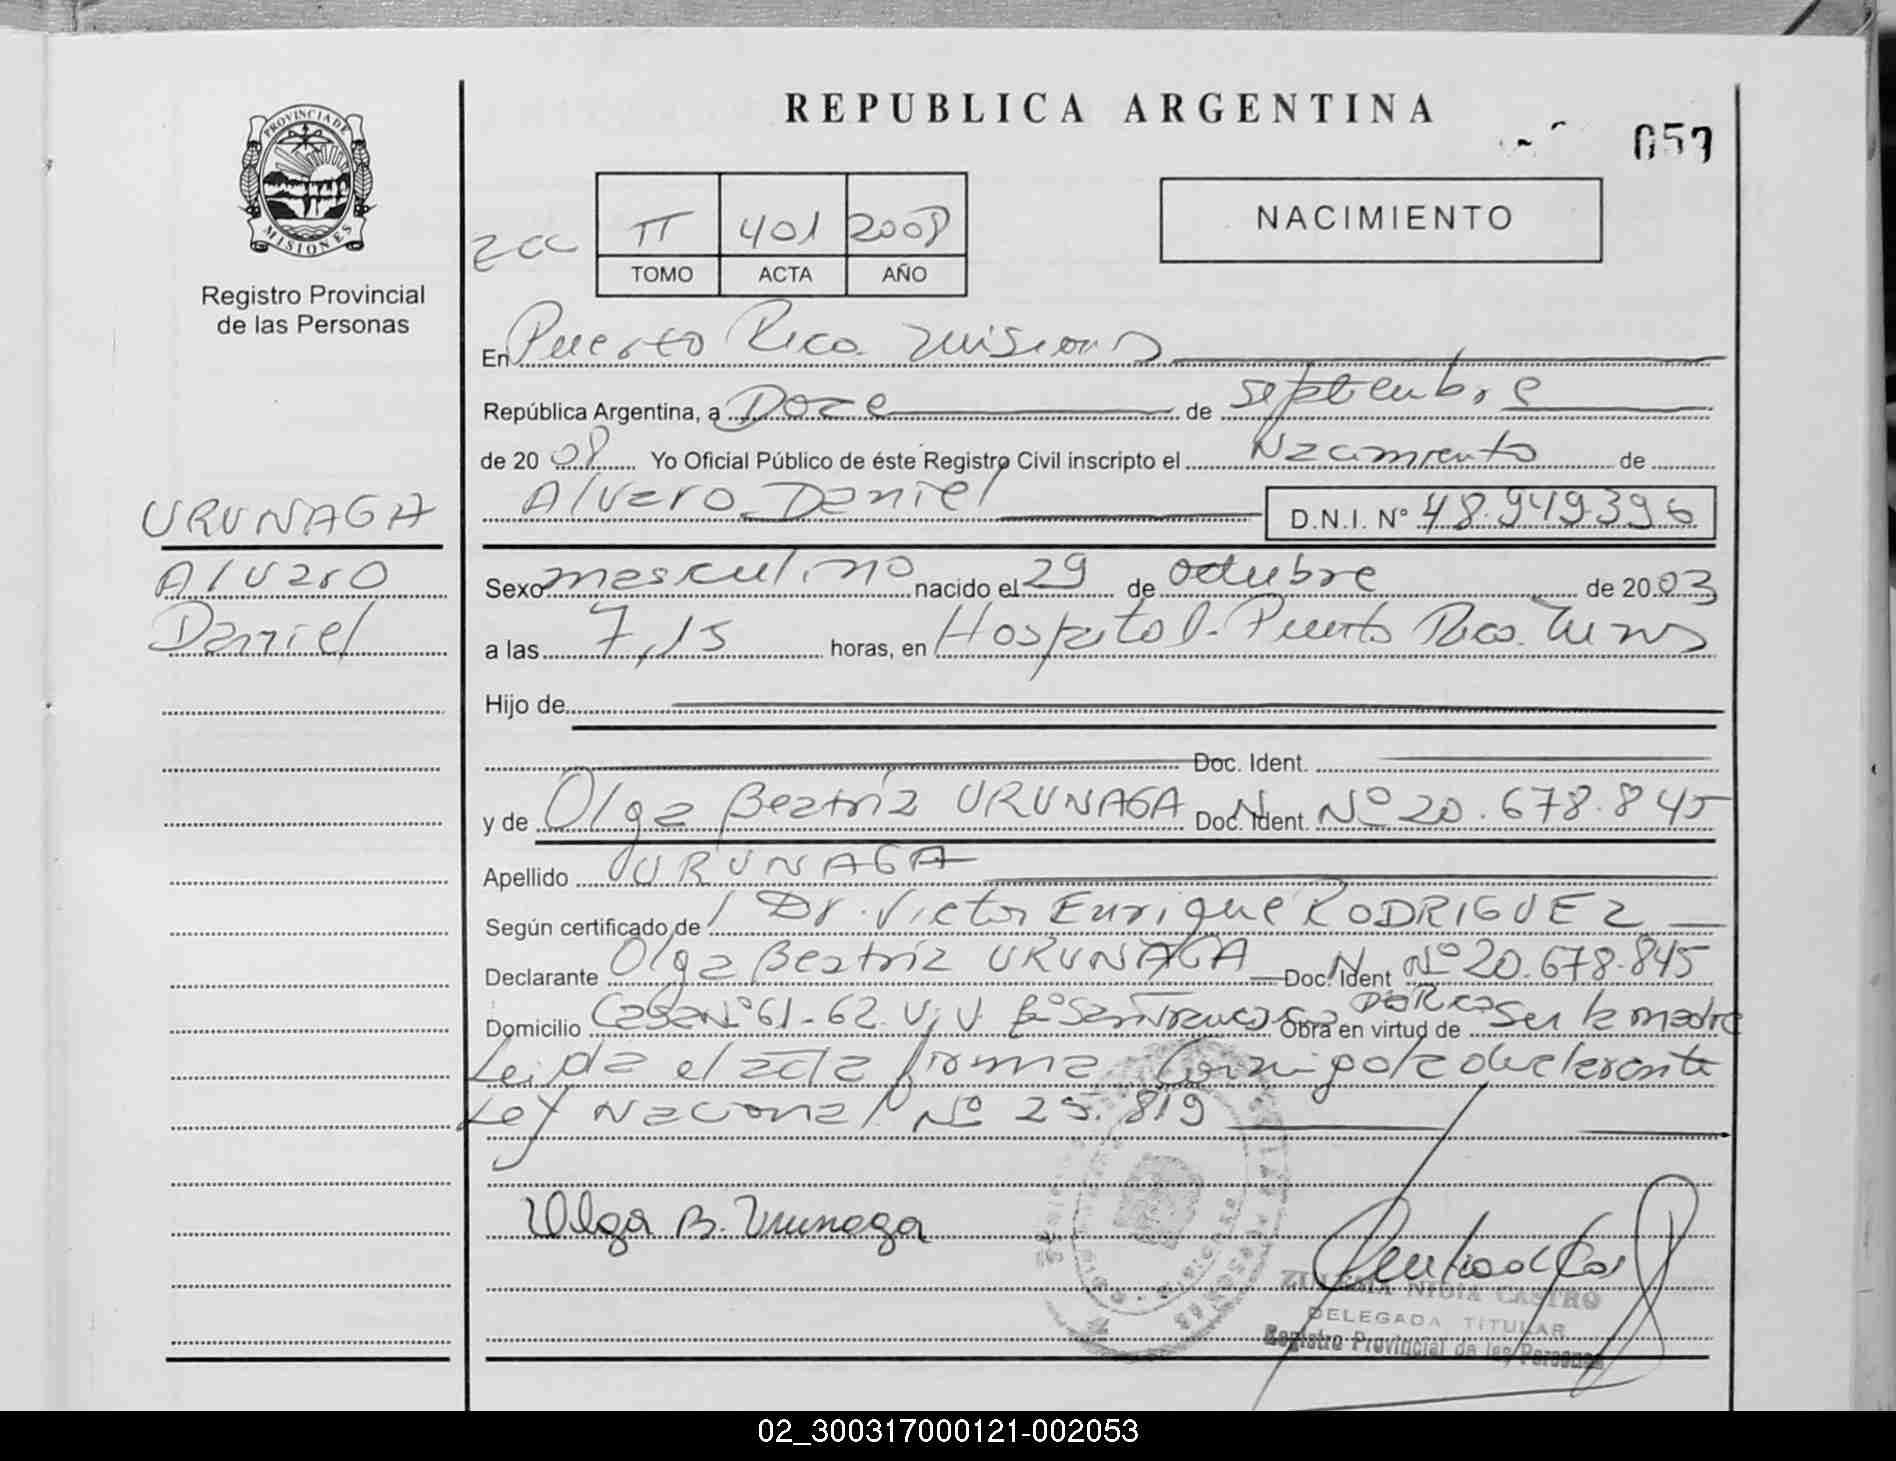 REPUBLICA ARGENTINA
059
PROVINCIA DE
MISIONES
Registro Provincial
de las Personas
NACIMIENTO
II 401 2008
TOMO ACTA AÑO
En Puerto Rico Misiones
República Argentina, a Doce de septiembre
de 20 08 Yo Oficial Público de éste Registro Civil inscripto el Nacimiento de
Alvaro Daniel D.N.I. N° 48.949.396
URUNAGA
Alvaro
Daniel
Sexo masculino nacido el 29 de octubre de 20 03
a las 7,15 horas, en Hospital. Puerto Rico.
Hijo de
Doc. Ident.
y de Olga Beatriz URUNAGA Doc. Ident. N Nº 20.678.845
Apellido URUNAGA
Según certificado de Dr. Victor Enrique RODRIGUEZ
Declarante Olga Beatriz URUNAGA Doc. Ident N Nº 20.678.845
Domicilio Casa Nº 61-62 V.V. Bº San Francisco Pto Rico Obra en virtud de Ser la madre
Leida el acta firma conmigo la declarante
Ley Nacional Nº 25.819
Olga B. Urunaga
ZULEMA NIDIA CASTRO
DELEGADA TITULAR
Registro Provincial de las Personas
02_300317000121-002053